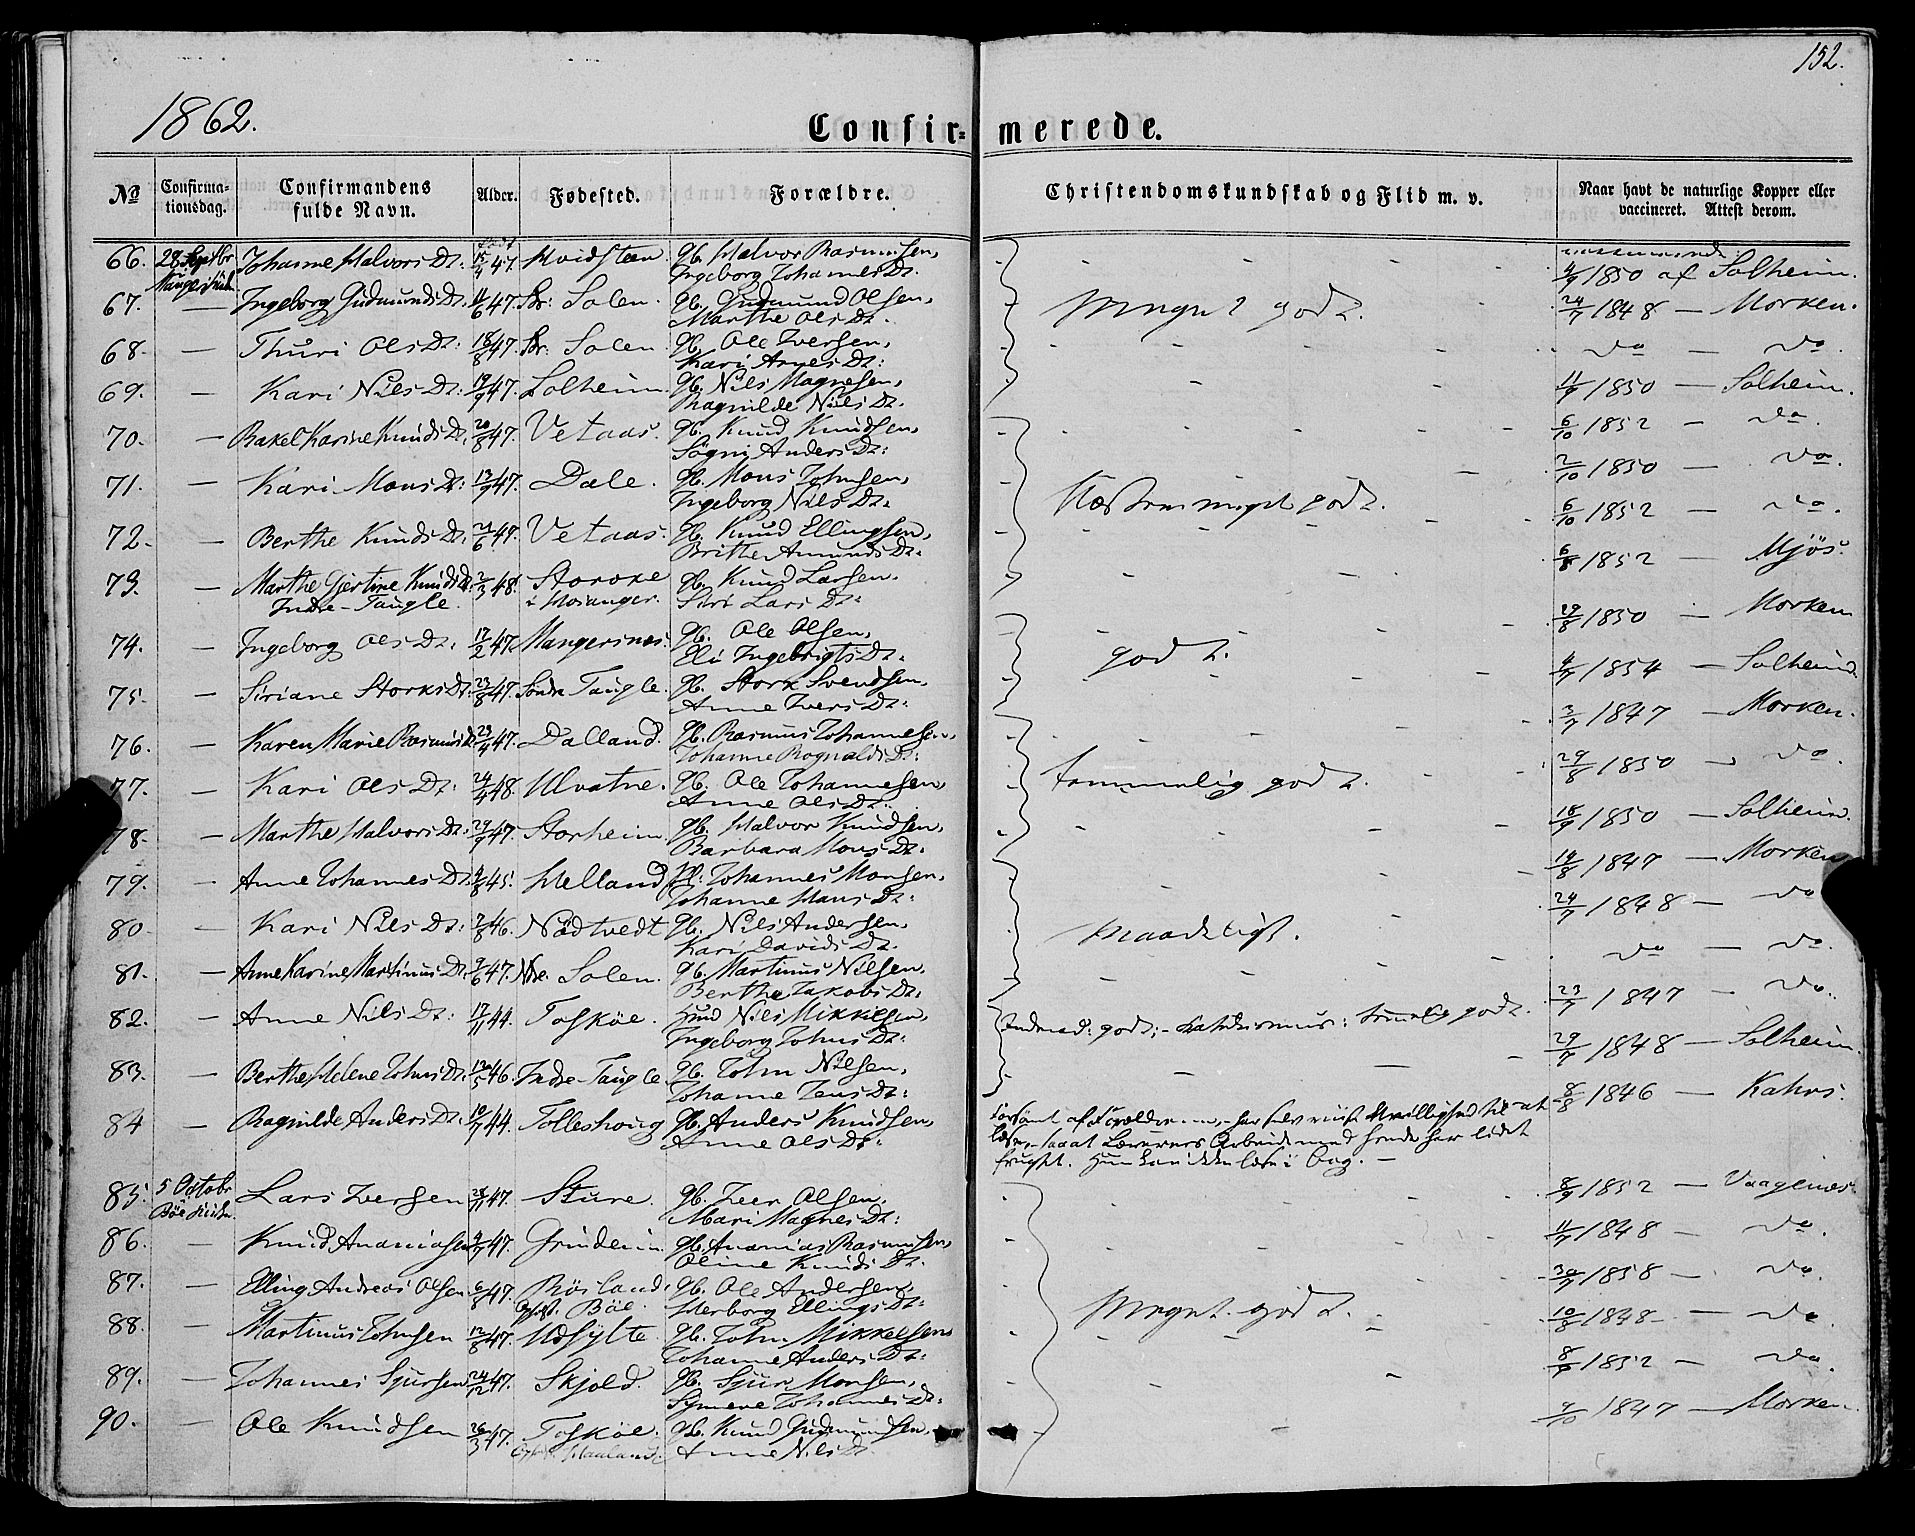 152.
1862.
Confir= merede.
No Confirma-tionsdag. Confirmandens fulde Navn. Alder. Fødested. Forældre. Christendomskundskab og Flid m. v. Naar havt de naturlige Kopper eller vaccineret. Attest derom.
66. 28 Septbr Johanne Halvors Dr: født 15/4 47. Hvidsteen. Gb. Halvor Rasmussen, 4/9 1850 af Solheim.
Ingeborg Johannes Dr.
67. — Ingeborg Gudmunds Dr. 11/6 47. Sør: Solen. Gb. Gudmund Olsen, Meget godt. 24/7 1848 — Morken.
Marthe Ols Dr.
68. — Thuri Ols Dr: 18/8 47. Sør: Solen. Gb. Ole Iversen, do — do.
Kari Arnes Dr:
69. — Kari Nils Dr: 19/9 47. Solheim. Gb. Nils Magnesen, 11/9 1850 — Solheim.
Ragnilde Nils Dr.
70. — Rakel Karine Knuds Dr. 20/8 47. Vetaas. Gb. Knud Knudsen, 6/10 1852 — do.
Sögni Anders Dr:
71. — Kari Mons Dr: 13/9 47. Dale. Gb. Mons Johnsen, Næsten meget godt. 2/10 1850 — do.
Ingeborg Nils Dr:
72. — Berthe Knuds Dr. 21/6 47. Vetaas. Gb. Knud Ellingsen, 6/10 1852 — do.
Brithe Amunds Dr:
73. — Marthe Gjertine Knuds Dr. 2/3 48. Storoxe Gb. Knud Larsen. 6/8 1852 — Mjøs.
Indre-Taugle. i Hosanger. Siri Lars Dr:
74. — Ingeborg Ols Dr. 17/2 47. Mangersnæs. Gb. Ole Olsen, godt. 29/8 1850 — Morken
Eli Ingebrigts Dr:
75. — Siriane Storks Dr: 23/8 47. Søndre Taugle. Gb. Stork Svendsen, 4/7 1854 — Solheim
Anne Ivers Dr:
76. — Karen Marie Rasmus Dr. 23/4 47. Dalland. Gb. Rasmus Johannesen, 3/7 1847 — Morken.
Johanne Rognalds Dr:
77. — Kari Ols Dr: 24/4 48. Ulvatne. Gb. Ole Johannesen, temmelig godt. 29/8 1850 — do.
Anne Ols Dr:
78. — Marthe Halvors Dr. 29/9 47. Storheim. Gb. Halvor Knudsen, 18/9 1850 — Solheim.
Barbara Mons Dr:
79. — Anne Johannes Dr. 4/8 45. Helland Pl: Johannes Monsen, 14/8 1847 — Morken
Johanne Hans Dr:
80. — Kari Nils Dr: 7/8 46. Nødtvedt Gb. Nils Andersen, Maadeligt. 24/7 1848 — do
Kari Davids Dr.
81. — Anne Karine Martinus Dr. 9/6 47. Ndre. Solen. Gb. Martinus Nilsen, do — do.
Berthe Jakobs Dr:
82. — Anne Nils Dr: 17/11 44. Toskøe. Hmd Nils Mikkelsen, godt; - Katekismus: temmelig godt. 23/7 1847 — do.
Ingeborg Johns Dr:
83. — Berthe Helene Johns Dr. 12/5 46. Indre-Taugle Gb. John Nilsen, 29/7 1848 — Solheim.
Johanne Jens Dr:
84 — Ragnilde Anders Dr. 10/7 44. Tolleshoug Gb. Anders Knudsen, Forsømt af Forældrene, har selv viist Uvillighed til at 8/8 1846 — Kahrs.
Anne Ols Dr: læse, saaat Lærernes Arbeide med hende har lidet
frugtet. Hun kan ikke læse i Bog. —
85. 5 Octobr Lars Iversen 28/11 47. Sture. Gb. Iver Olsen, 8/9 1852 — Vaagenæs.
Bøe Kirke. Mari Magnes Dr:
86. — Knud Ananiasen 9/7 47. Grindeim. Gb. Ananias Rasmussen, 11/7 1848 — do
Oline Knuds Dr.
87. — Elling Andreas Olsen 6/8 47. Røsland. Gb. Ole Andersen, 30/7 1858 — do.
Bøe. Herborg Ellings Dr:
88. — Martinus Johnsen 12/8 47. Udsylte. Gb. John Mikkelsen, Meget godt. 10/8 1848 — do
Johanne Anders Dr:
89. — Johannes Sjursen 24/12 47. Skjold. Gb. Sjur Monsen, 8/9 1852 — do.
Synneve Johannes Dr:
90. — Ole Knudsen 26/3 47. Toskøe. Gb. Knud Gudmundsen, 7/10 1847 — Morken.
Anne Nils Dr.